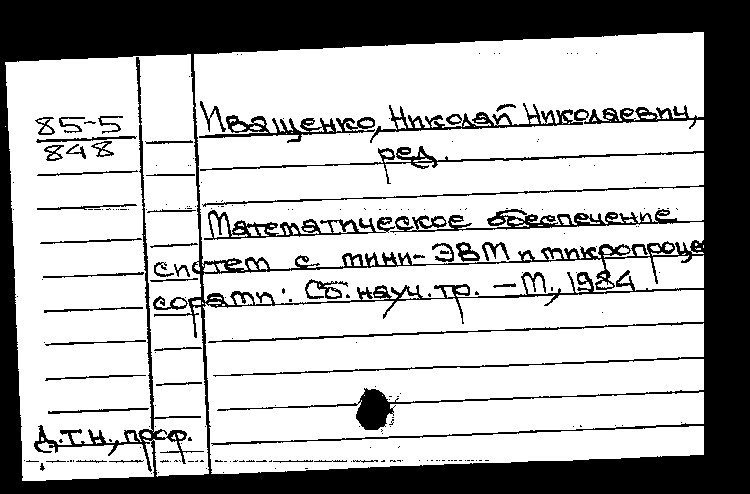 85-5
848
Иващенко, Николай Николаевич,
ред.
Математическое обеспечение
систем с мини-ЭВМ и микропроцес
сорами: Сб. науч. тр. – М., 1984.
Д.т.н., проф.